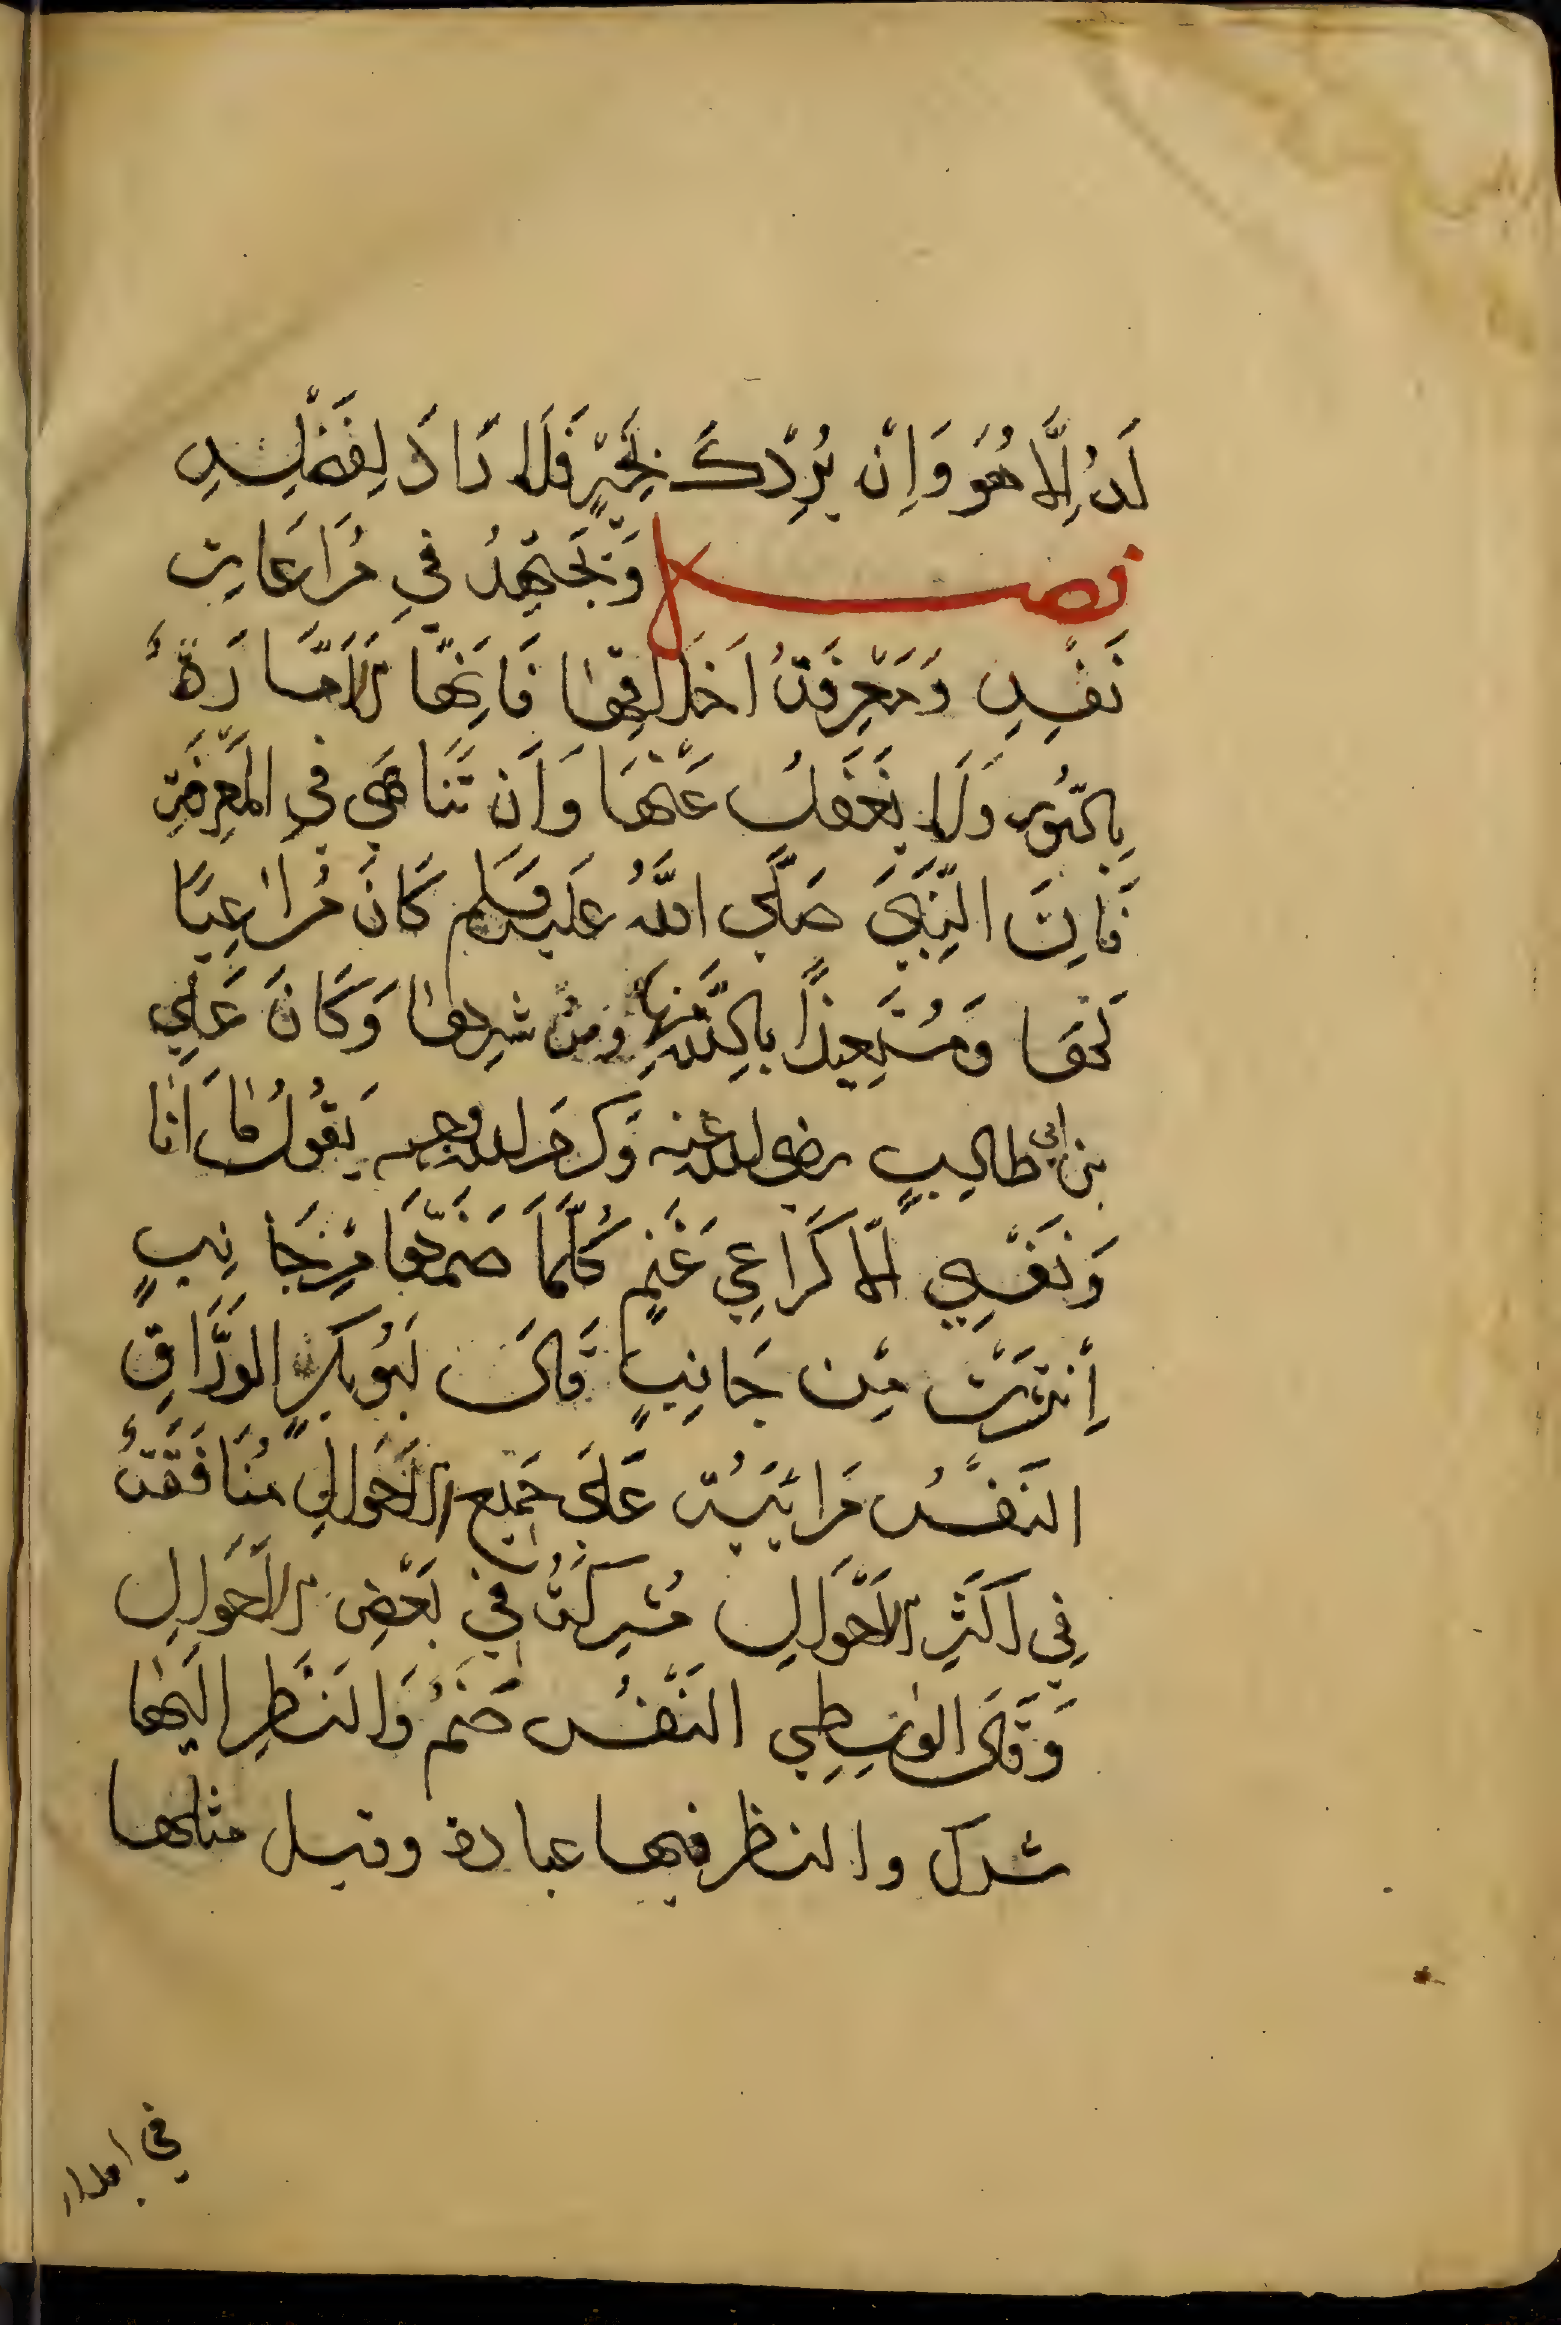 لَهُ إِلَّا هُوَ وَإِنْ يُرِدْكَ بِخَيْرٍ فَلَا رَادَّ لِفَضْلِهِ
فصل وَيَجْتَهِدُ فِي مُرَاعَات
نَفْسِهِ وَمَعْرِفَةُ اَخْلَاقِهَا فَاِنَّهَا لَاَمَّارَةٌ
بِالسُّوءِ وَلَا يَغْفَلُ عَنْهَا وَاَنْ تَنَاهَى فِي الْمَعْرِفَةِ
فَاِنَّ النَّبِيَّ صَلَّى اللَّهُ عَلَيهِ وَسَلم كَانَ مُرَاعِيًا
لَهَا وَمُسْتَعِيذًا بِاللَّهِ مِنهَا وَمن شَرِهَا وَكَانَ عَلِي
بن ابي طالِبٍ رضى الله عنه وَكرمَ الله وجهه يَقُولُ مَا اَنَا
وَنَفْسِي اِلَّا كَرَاعِي غَنَمٍ كُلَّمَا ضَمَّهَا مِنْ جَانِبٍ
اِنْتَشَرَتْ مِنْ جَانِبٍ قَالَ اَبُو بَكْرٍ الوَرَّاقِ
النَفْسُ مُرَائِيَةٌ عَلَى جَمِيعِ الْاَحْوَالِ مُنَافَقَةٌ
فِي اَكْثَرِ الْاَحْوَالِ مُشْرِكَةٌ فِي بَعْضِ الْاَحْوَالِ
وَقَالَ الوَاسِطِي النَفْسُ صَنَمٌ وَالنَظَرِ اِلَيْهَا
شرك والنظر فيها عبادة وقيل مثلها
في ابدا